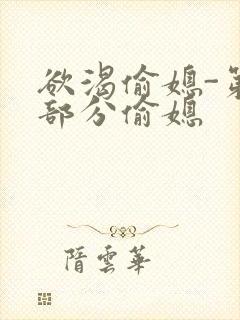 欲渴偷媳-第
部分偷媳
隋雲華